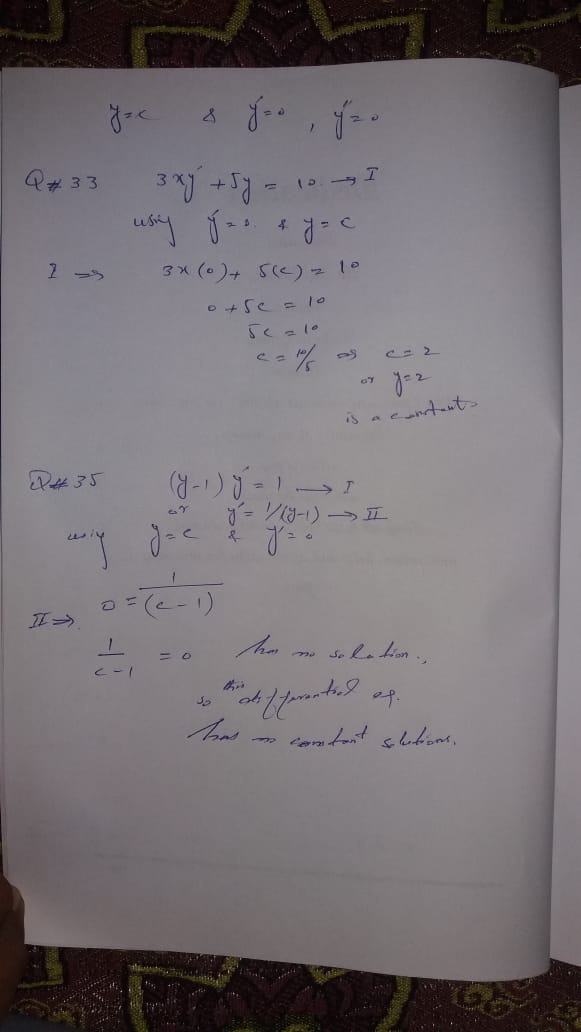 y=c & y'=0 , y''=0
Q#33 3xy' + 5y = 10. → I
using y'=0. & y=c
I ⇒ 3x(0) + 5(c) = 10
0 + 5c = 10
5c = 10
c = 10/5 ⇒ c = 2
or y=2
is a constant
Q#35 (y-1) y' = 1 → I
or y' = 1/(y-1) → II
using y=c & y'=0
II ⇒ 0 = 1/(c-1)
1/(c-1) = 0 has no solution.,
so this differential eq.
has no constant solutions.